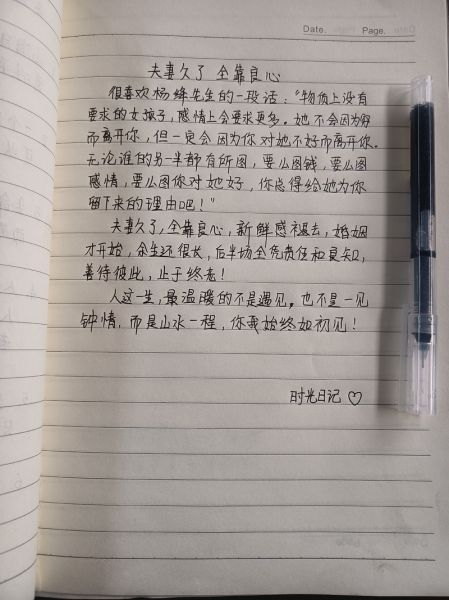 Date. Page.
夫妻久了 全靠良心
很喜欢杨绛先生的一段话："物质上没有
要求的女孩子，感情上会要求更多。她不会因为穷
而离开你，但一定会因为你对她不好而离开你。
无论谁的另一半都有所图，要么图钱，要么图
感情，要么图你对她好，你总得给她为你
留下来的理由吧！"
夫妻久了，全靠良心，新鲜感褪去，婚姻
才开始，余生还很长，后半场全凭责任和良知，
善待彼此，止于终老！
人这一生，最温暖的不是遇见，也不是一见
钟情，而是山水一程，你我始终如初见！
时光日记♡